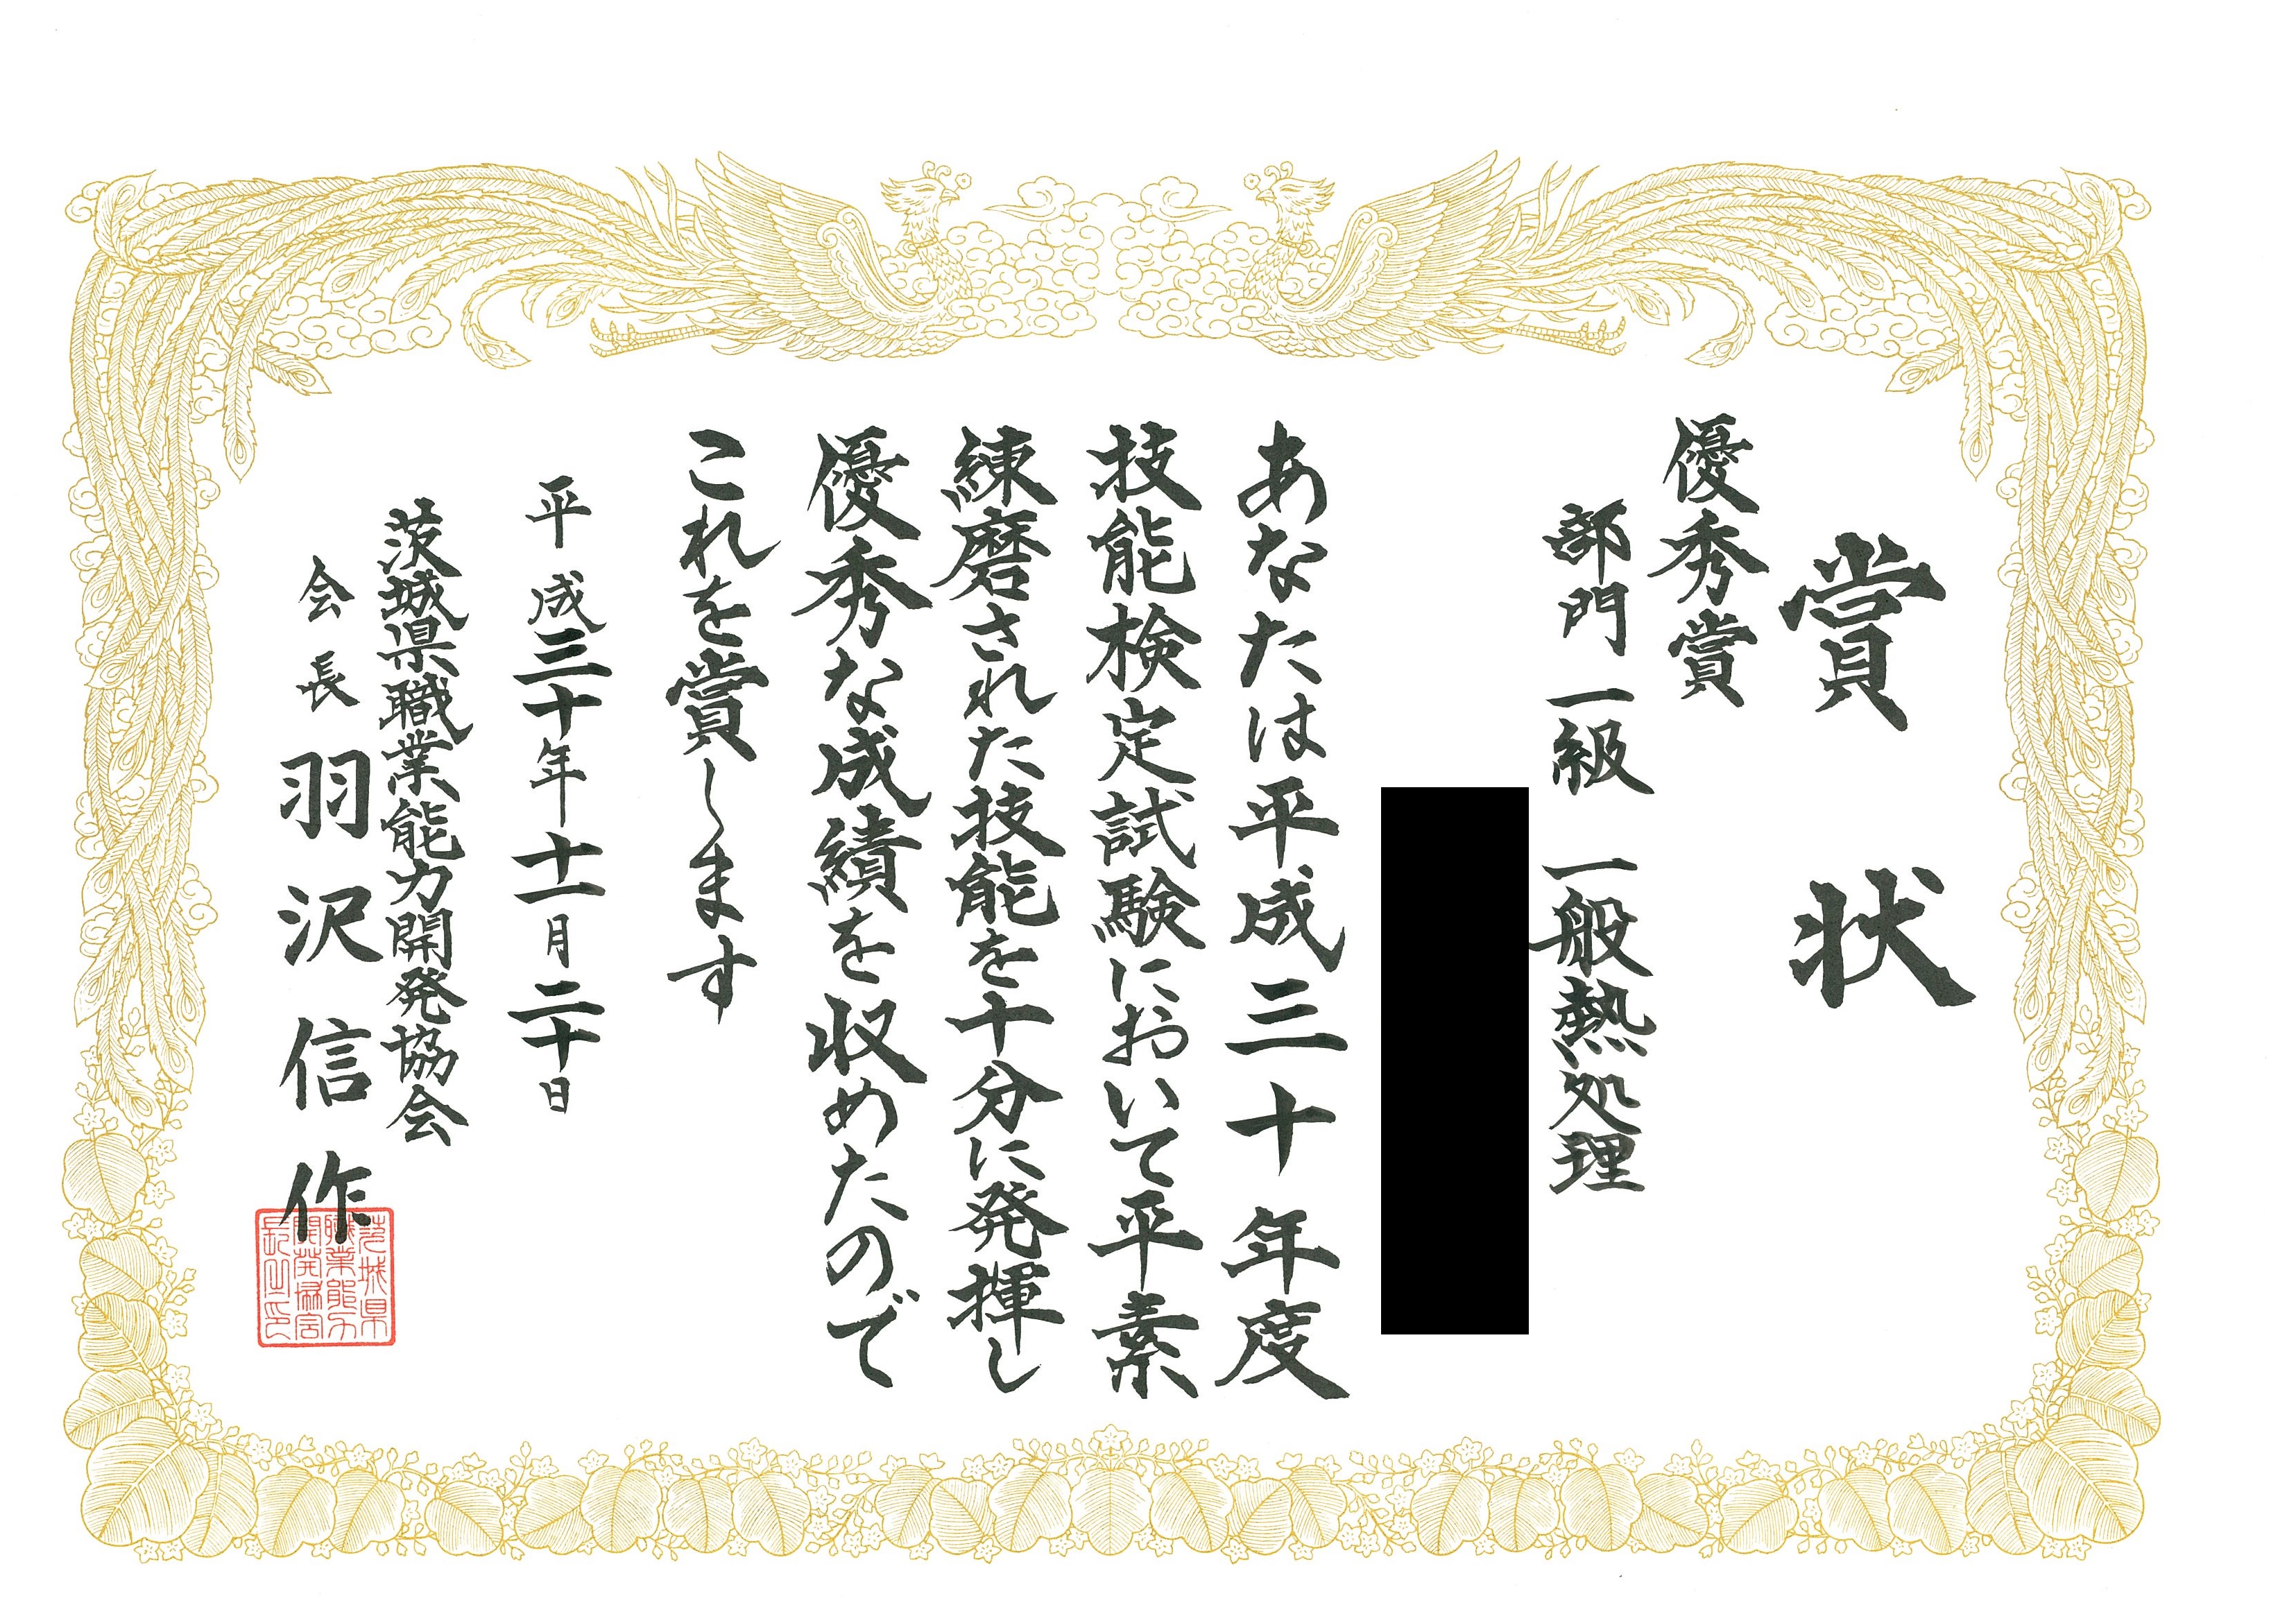 賞状
優秀賞
部門 一級 一般熱処理
あなたは平成三十年度
技能検定試験において平素
練磨された技能を十分に発揮し
優秀な成績を収めたので
これを賞します
平成三十年十一月二十日
茨城県職業能力開発協会
会長 羽沢信作
茨城県
職業能力
開発協会
長之印